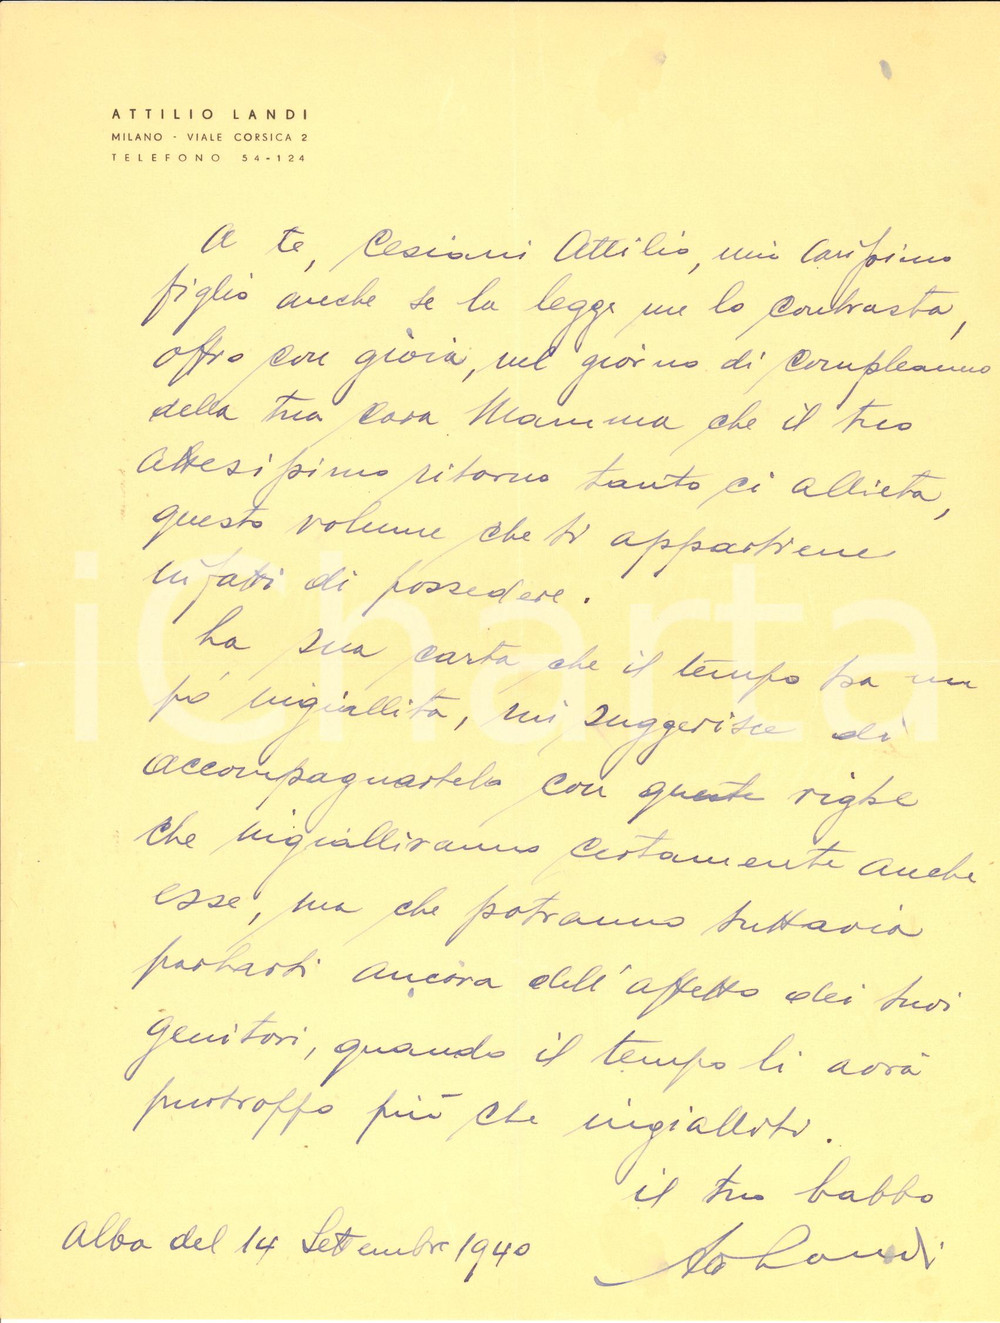 ATTILIO LANDI
MILANO - VIALE CORSICA 2
TELEFONO 54-124
A te, Cesiani Attilio, mio carissimo
figlio anche se la legge me lo contrasta,
offro con gioia, nel giorno di compleanno
della tua cara Mamma che il tuo
attesissimo ritorno tanto ci allieta,
questo volume che ti appartiene
di possedere.
La sua carta che il tempo ha un
pò ingiallita, mi suggerisce di
accompagnartelo con queste righe
che ingialliranno certamente anche
esse, ma che potranno tuttavia
parlarti ancora dell'affetto dei tuoi
genitori, quando il tempo li avrà
purtroppo più che ingialliti.
il tuo babbo
Landi
Alba del 14 Settembre 1940
iCharta